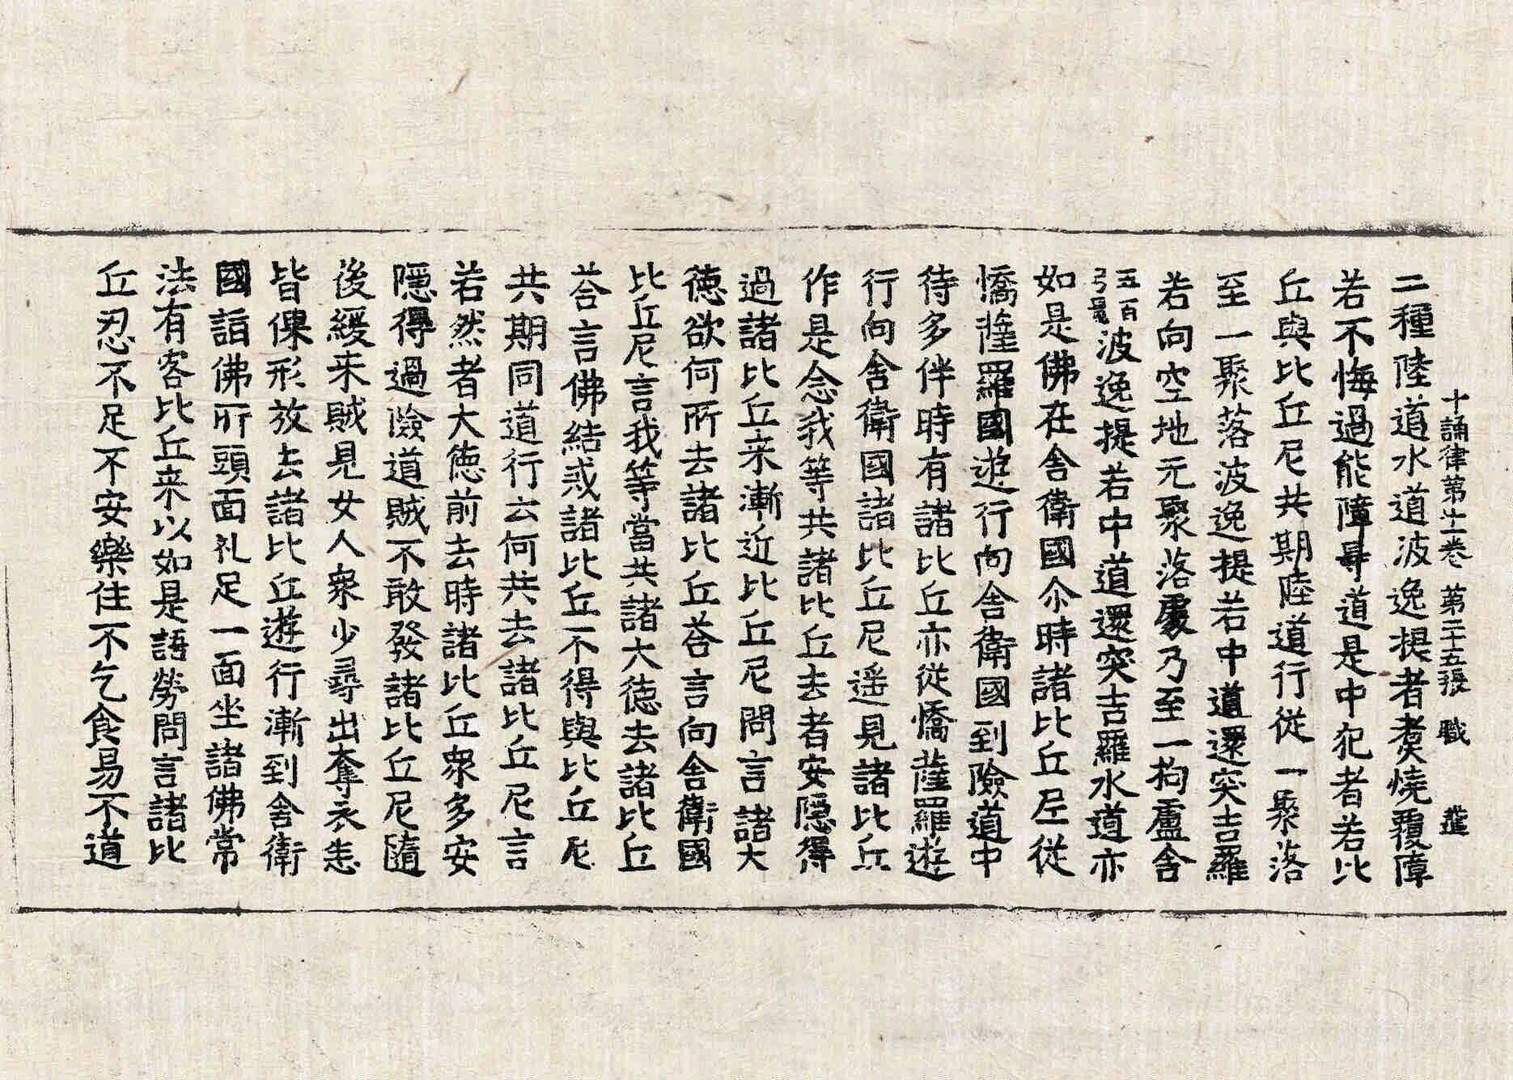 十誦律第十一卷 第二十五張 職
二種陸道水道波逸提者煑燒覆障
若不悔過能障㝵道是中犯者若比
丘與比丘尼共期陸道行從一聚落
至一聚落波逸提若中道還突吉羅
若向空地无聚落處乃至一拘盧舍
五百弓量波逸提若中道還突吉羅水道亦
如是佛在舍衛國尒時諸比丘尼從
憍薩羅國遊行向舍衛國到險道中
待多伴時有諸比丘亦從憍薩羅遊
行向舍衛國諸比丘尼遥見諸比丘
作是念我等共諸比丘去者安隱得
過諸比丘来漸近比丘尼問言諸大
德欲何所去諸比丘荅言向舍衛國
比丘尼言我等當共諸大德去諸比丘
荅言佛結戒諸比丘不得與比丘尼
共期同道行云何共去諸比丘尼言
若然者大德前去時諸比丘衆多安
隱得過險道賊不敢發諸比丘尼隨
後緩来賊見女人衆少尋出奪衣悉
皆倮形放去諸比丘遊行漸到舍衛
國詣佛所頭面礼足一面坐諸佛常
法有客比丘来以如是語勞問言諸比
丘忍不足不安樂住不乞食易不道